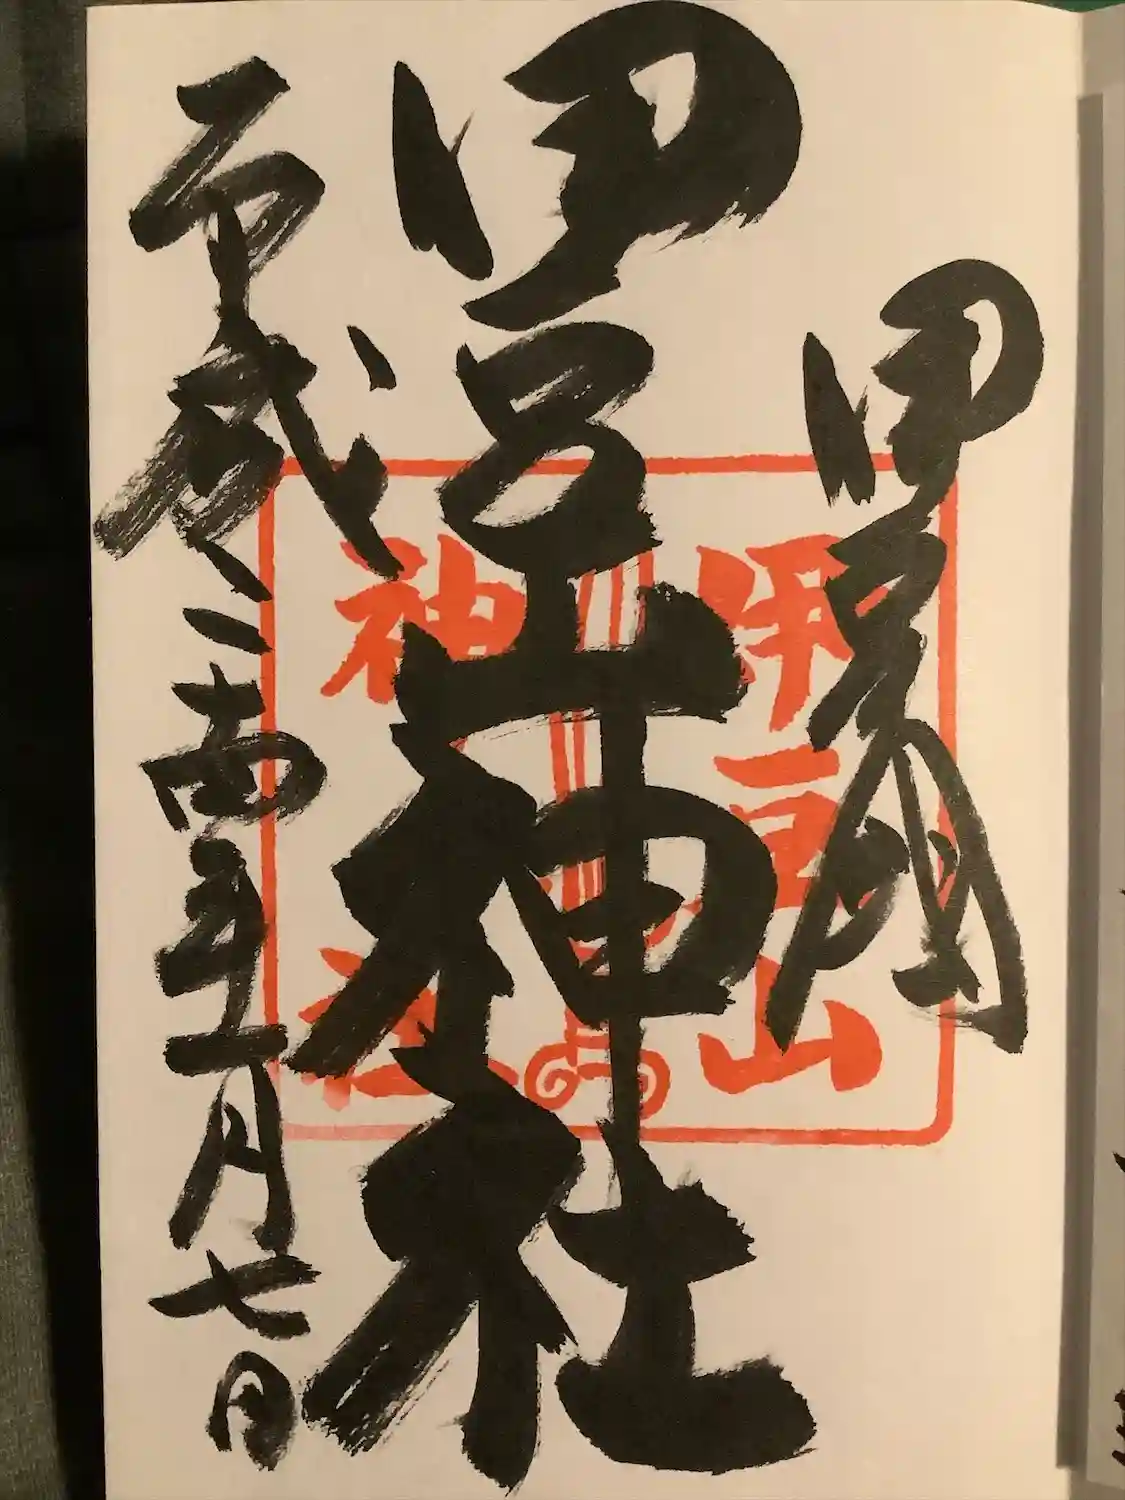 伊豆國
伊豆山神社
平成二十四年一月七日
伊豆山
神社